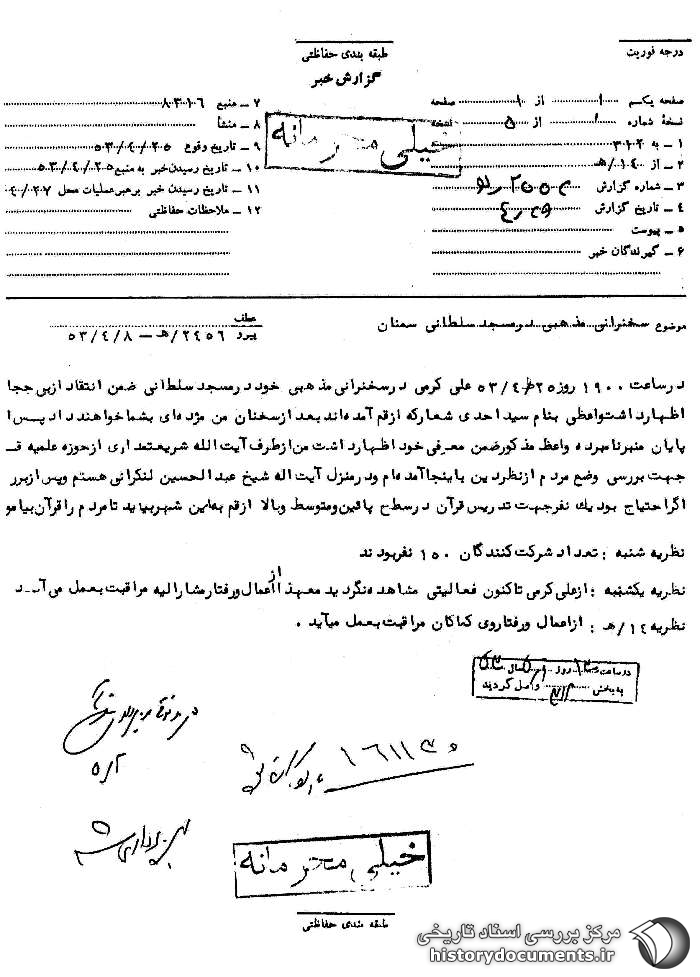 درجه فوریت
طبقه بندی حفاظتی
گزارش خبر
صفحه یکم ۱ از ۱ صفحه
نسخهٔ شماره ۱ از ۵ نسخه
۱ ـ به ۳۱۲
۲ ـ از ۱۴/هـ
۳ ـ شماره گزارش
۴ ـ تاریخ گزارش
۵ ـ پیوست
۶ ـ گیرندگان خبر
۷ ـ منبع ۸۳۱۶
۸ ـ منشأ
۹ ـ تاریخ وقوع ۵۳/۴/۲۵
۱۰ ـ تاریخ رسیدن خبر به منبع ۵۳/۴/۲۵
۱۱ ـ تاریخ رسیدن خبر به رهبر عملیات محل ۴/۲۷
۱۲ ـ ملاحظات حفاظتی
خیلی محرمانه
موضوع سخنرانی مذهبی در مسجد سلطانی سمنان
عطف
پیرو ۲۴۵۶/هـ ـ ۵۳/۴/۸
در ساعت ۱۹۰۰ روز ۵۳/۴/۲۵ علی کرمی در سخنرانی مذهبی خود در مسجد سلطانی ضمن انتقاد از بی حجا
اظهار داشت واعظی بنام سید احدی شعار که از قم آمده اند بعد از سخنان من مژده ای بشما خواهند داد پس ا
پایان منبر نامبرده واعظ مذکور ضمن معرفی خود اظهار داشت من از طرف آیت الله شریعتمداری از حوزه علمیه قـ
جهت بررسی وضع مردم از نظر دین باینجا آمده ام و در منزل آیت اله شیخ عبدالحسین لنکرانی هستم و پس از برر
اگر احتیاج بود یك نفر جهت تدریس قرآن در سطح پائین و متوسط وبالا از قم به این شهر بیاید تا مردم را قرآن بیامو
نظریه شنبه : تعداد شرکت کنندگان ۱۵۰ نفر بودند
نظریه یکشنبه : از علی کرمی تاکنون فعالیتی مشاهده نگردید معهذا از اعمال ورفتار مشارالیه مراقبت بعمل می آید
نظریه ۱۴/هـ : از اعمال ورفتار وی کماکان مراقبت بعمل میآید .
در ساعت ۱۳ روز سال ۵۳
به بخش ۳۱۲ واصل گردید
۵/۲
۱۶۱۱۳۰
خیلی محرمانه
طبقه بندی حفاظتی
مرکز بررسی اسناد تاریخی
historydocuments.ir